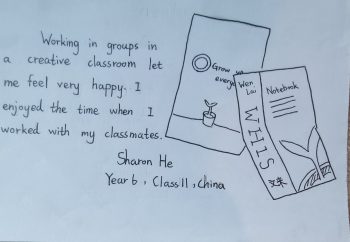 Working in groups in
a creative classroom let
me feel very happy. I
enjoyed the time when I
worked with my classmates.
Sharon He
Year 6, Class 11, China
Grow
every
Wen
Lai
WHLS
Notebook